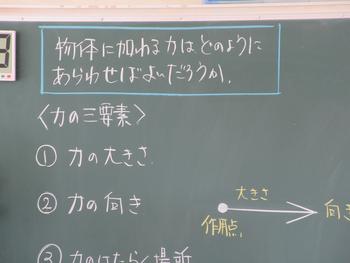 物体に加わる力はどのように
あらわせばよいだろうか.
〈力の三要素〉
① 力の大きさ
② 力の向き
大きさ
向き
作用点
③ 力のはたらく場所